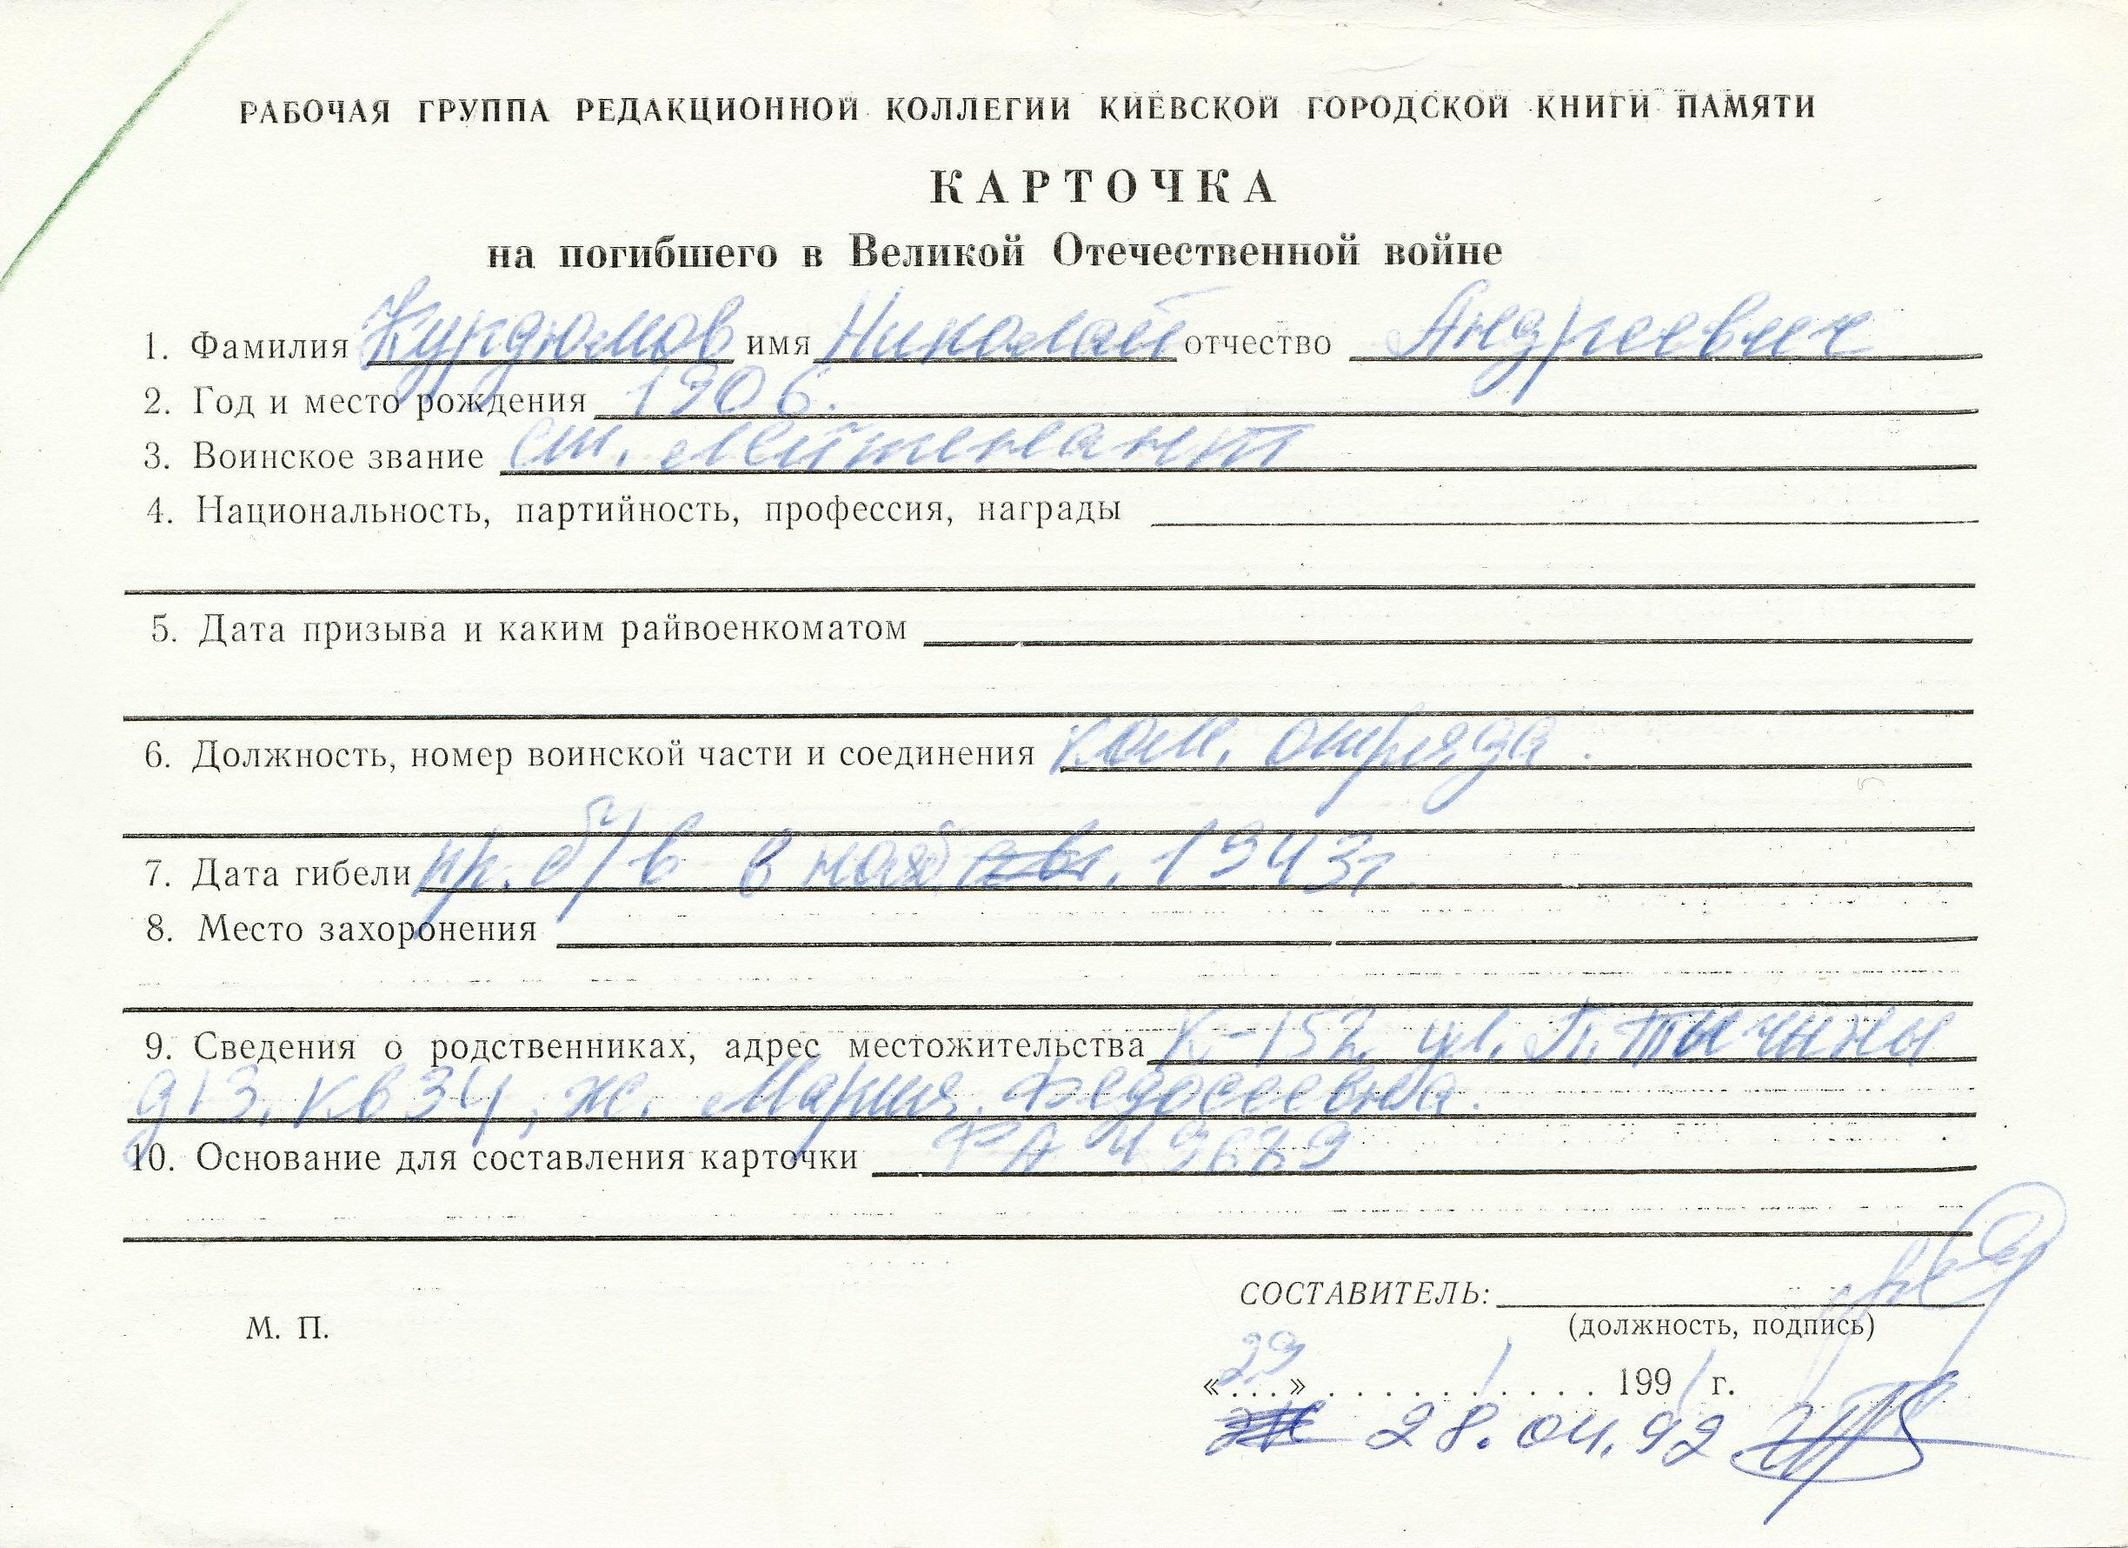 РАБОЧАЯ ГРУППА РЕДАКЦИОННОЙ КОЛЛЕГИИ КИЕВСКОЙ ГОРОДСКОЙ КНИГИ ПАМЯТИ
КАРТОЧКА
на погибшего в Великой Отечественной войне
1. Фамилия Курдюмов имя Николай отчество Андреевич
2. Год и место рождения 1906.
3. Воинское звание ст. лейтенант
4. Национальность, партийность, профессия, награды
5. Дата призыва и каким райвоенкоматом
6. Должность, номер воинской части и соединения ком. отряда.
7. Дата гибели пр. б/в в нояб. 1943г
8. Место захоронения
9. Сведения о родственниках, адрес местожительства К-152 ул. П. Тычины
д 13. кв 34, ж. Мария Федосеевна.
10. Основание для составления карточки
СОСТАВИТЕЛЬ:
М. П.
(должность, подпись)
«29» 1 1991 г.
28.04.92